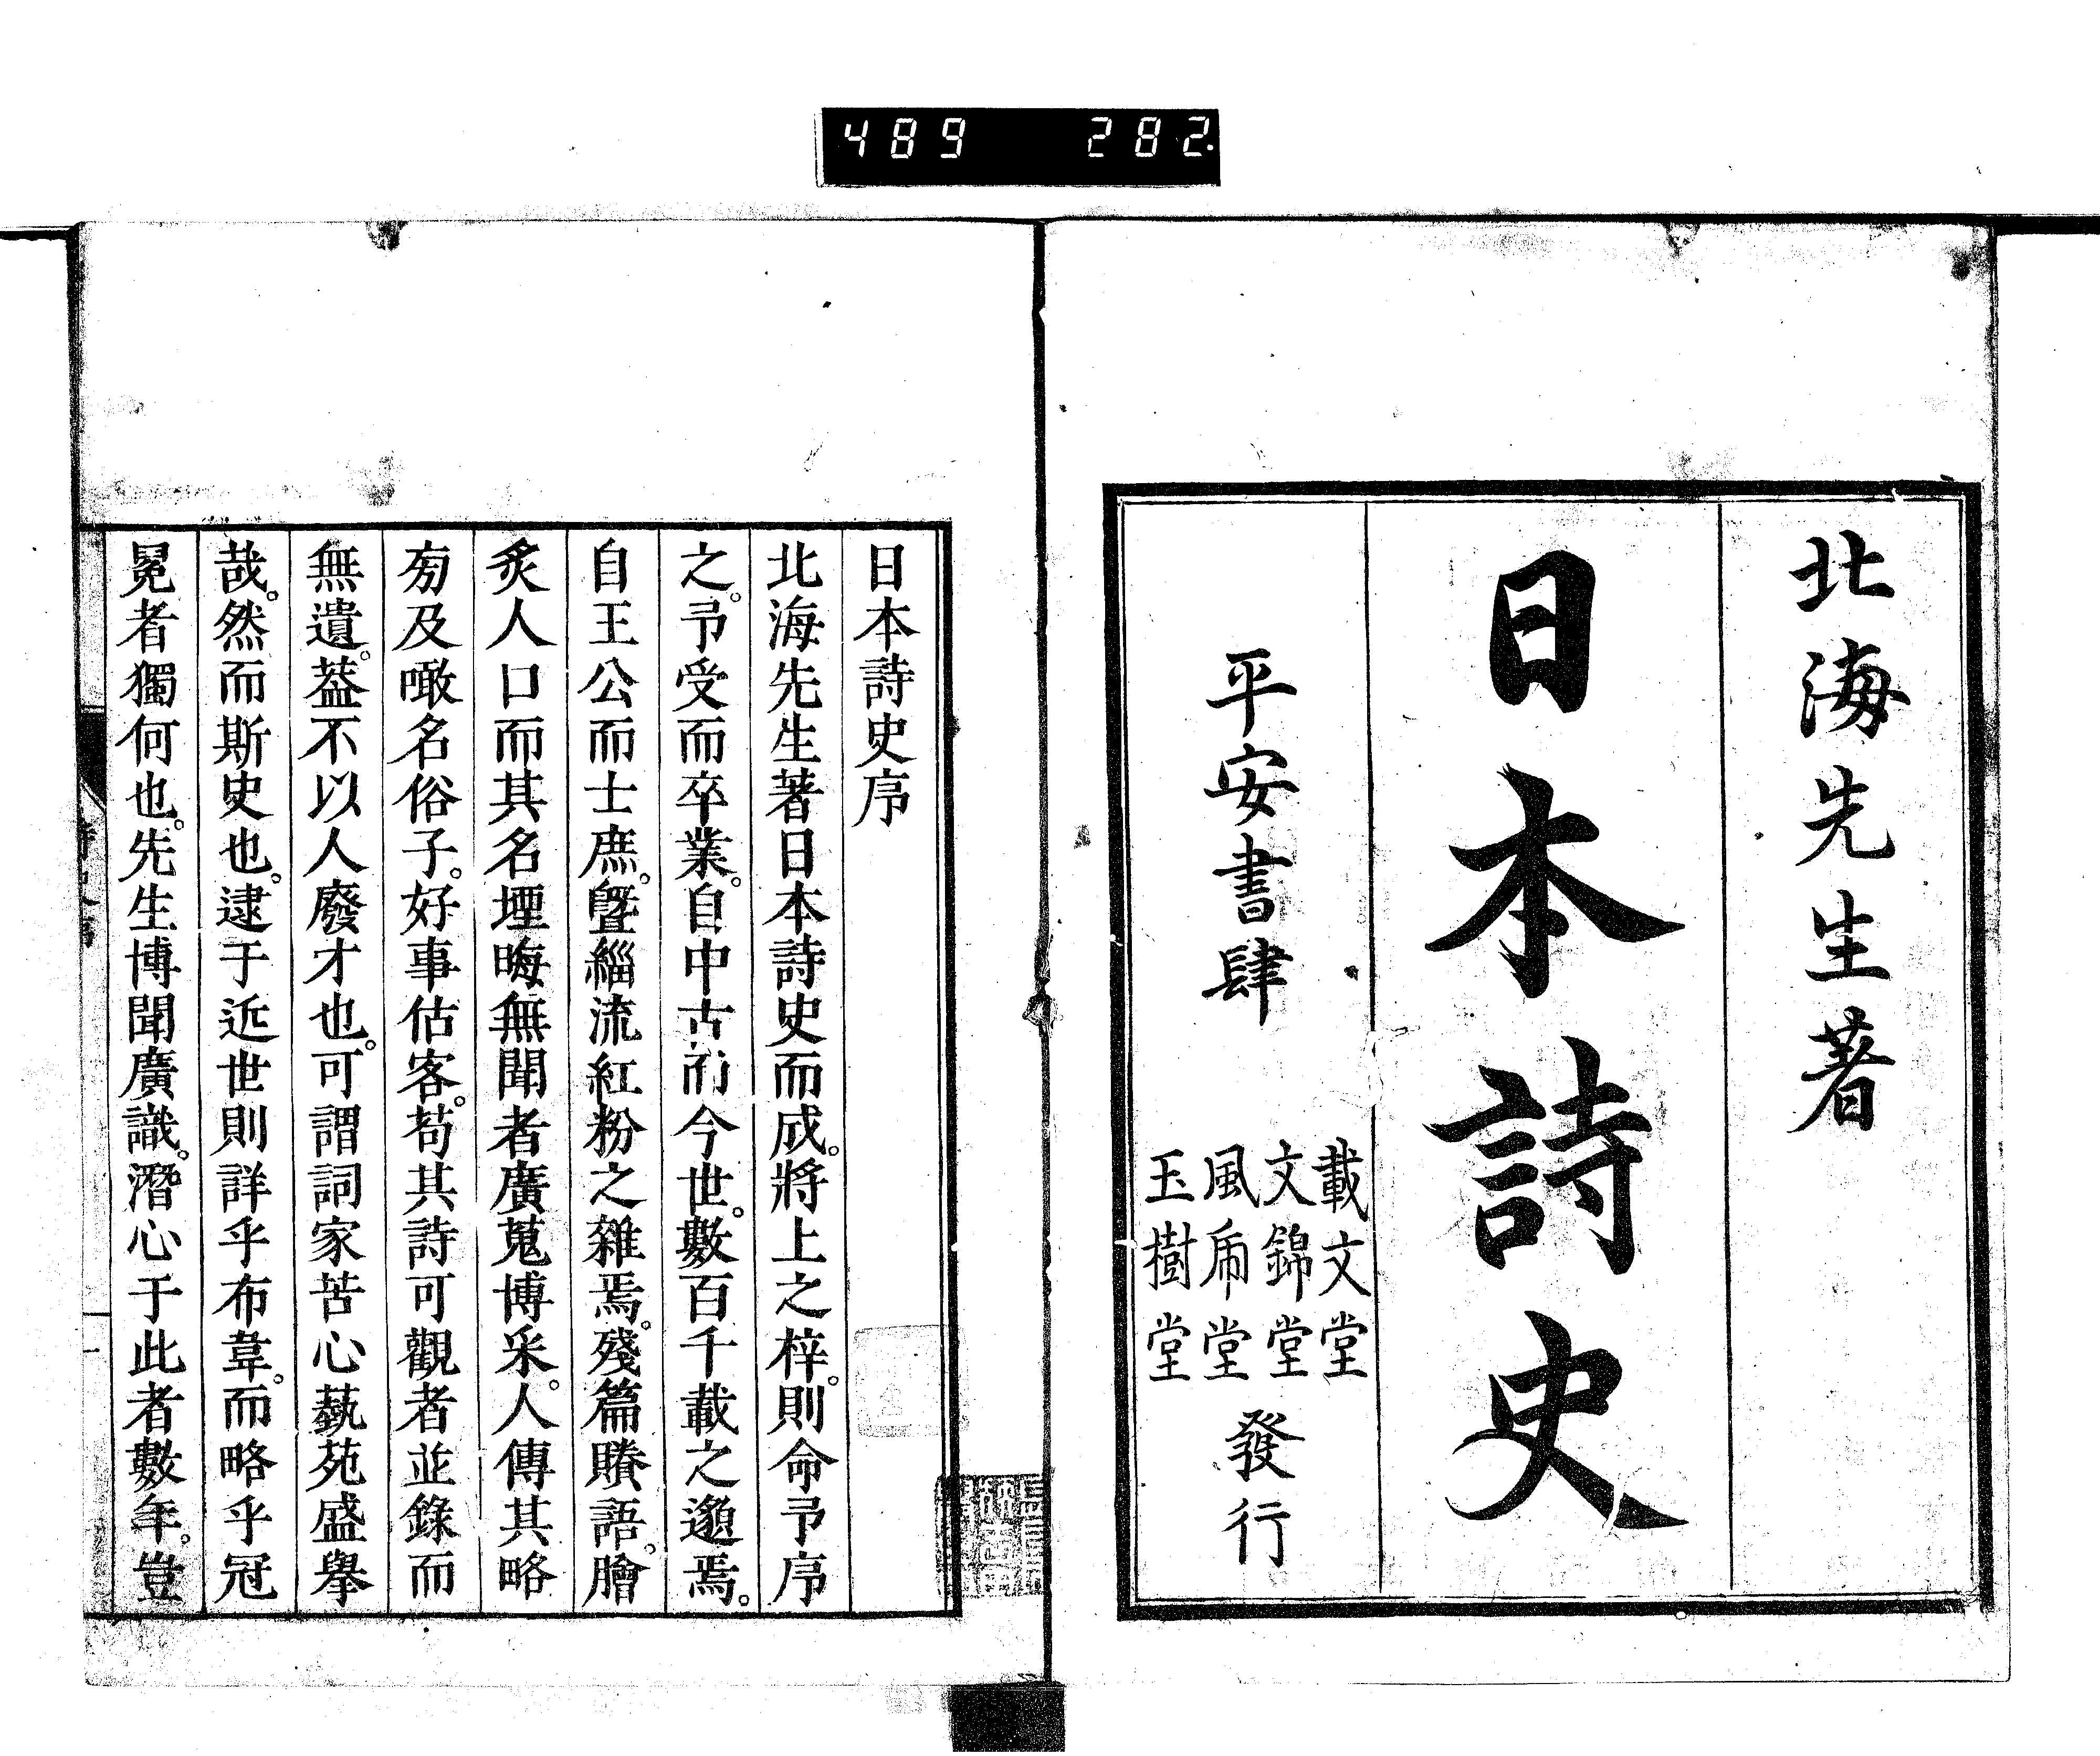 489 282.
北海先生著
日本詩史
平安書肆
載文堂
文錦堂
風帍堂
玉樹堂
發行
日本詩史序
北海先生著日本詩史而成。將上之梓。則命予序
之。予受而卒業。自中古而今世。數百千載之邈焉。
自王公而士庶。曁緇流紅粉之雜焉。殘篇賸語。膾
炙人口而其名堙晦無聞者廣蒐博采。人傳其略
旁及噉名俗子。好事估客。苟其詩可觀者並錄而
無遺。葢不以人廢才也。可謂詞家苦心藝苑盛擧
哉。然而斯史也。逮于近世則詳乎布韋。而略乎冠
冕者獨何也。先生博聞廣識。潛心于此者數年。豈